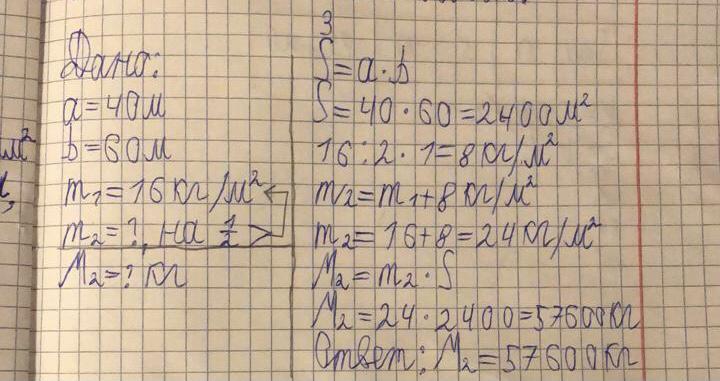 3
Дано:
a=40м
b=60м
m₁=16кг/м²
m₂=?, на 1/2 >
M₂=? кг
S=a·b
S=40·60=2400м²
16:2·1=8кг/м²
m₂=m₁+8кг/м²
m₂=16+8=24кг/м²
M₂=m₂·S
M₂=24·2400=57600кг
Ответ: M₂=57600кг
м²